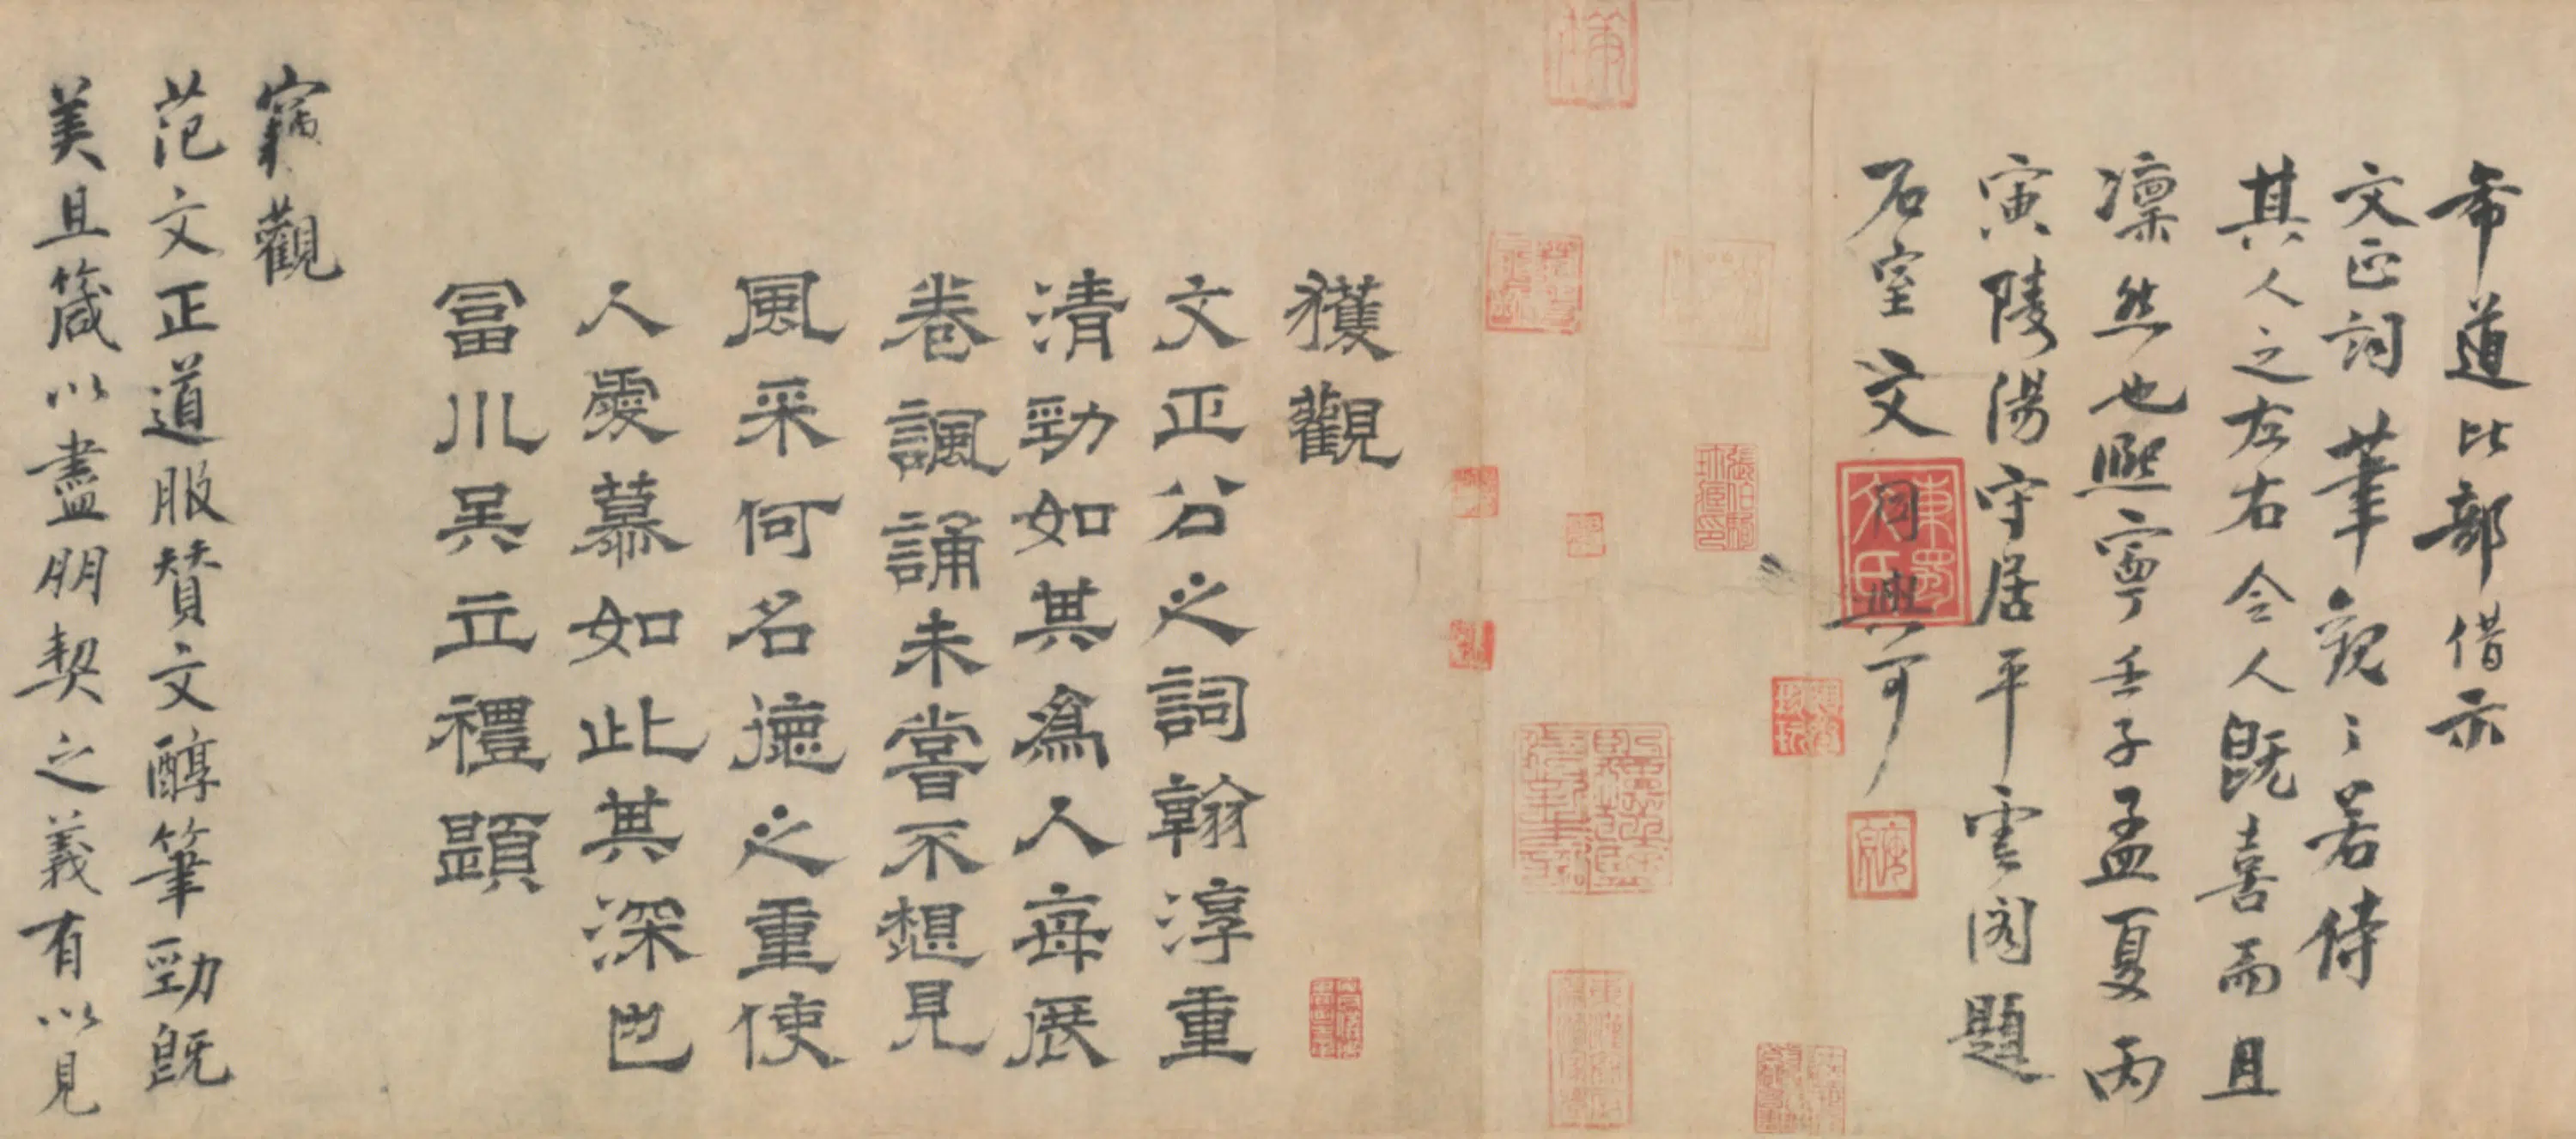 希道比部借示
文正詞筆觀之若侍
其人之左右令人既喜而且
凜然也熙寧壬子孟夏丙
寅陵陽守居平雲閣題
石室文同與可
獲觀
文正公之詞翰淳重
清勁如其為人每展
卷諷誦未嘗不想見
風采何名德之重使
人愛慕如此其深也
富川吳立禮題
竊觀
范文正道服贊文醇筆勁既
美且箴以盡朋契之義有以見
張伯駒珍藏印
東蜀文氏